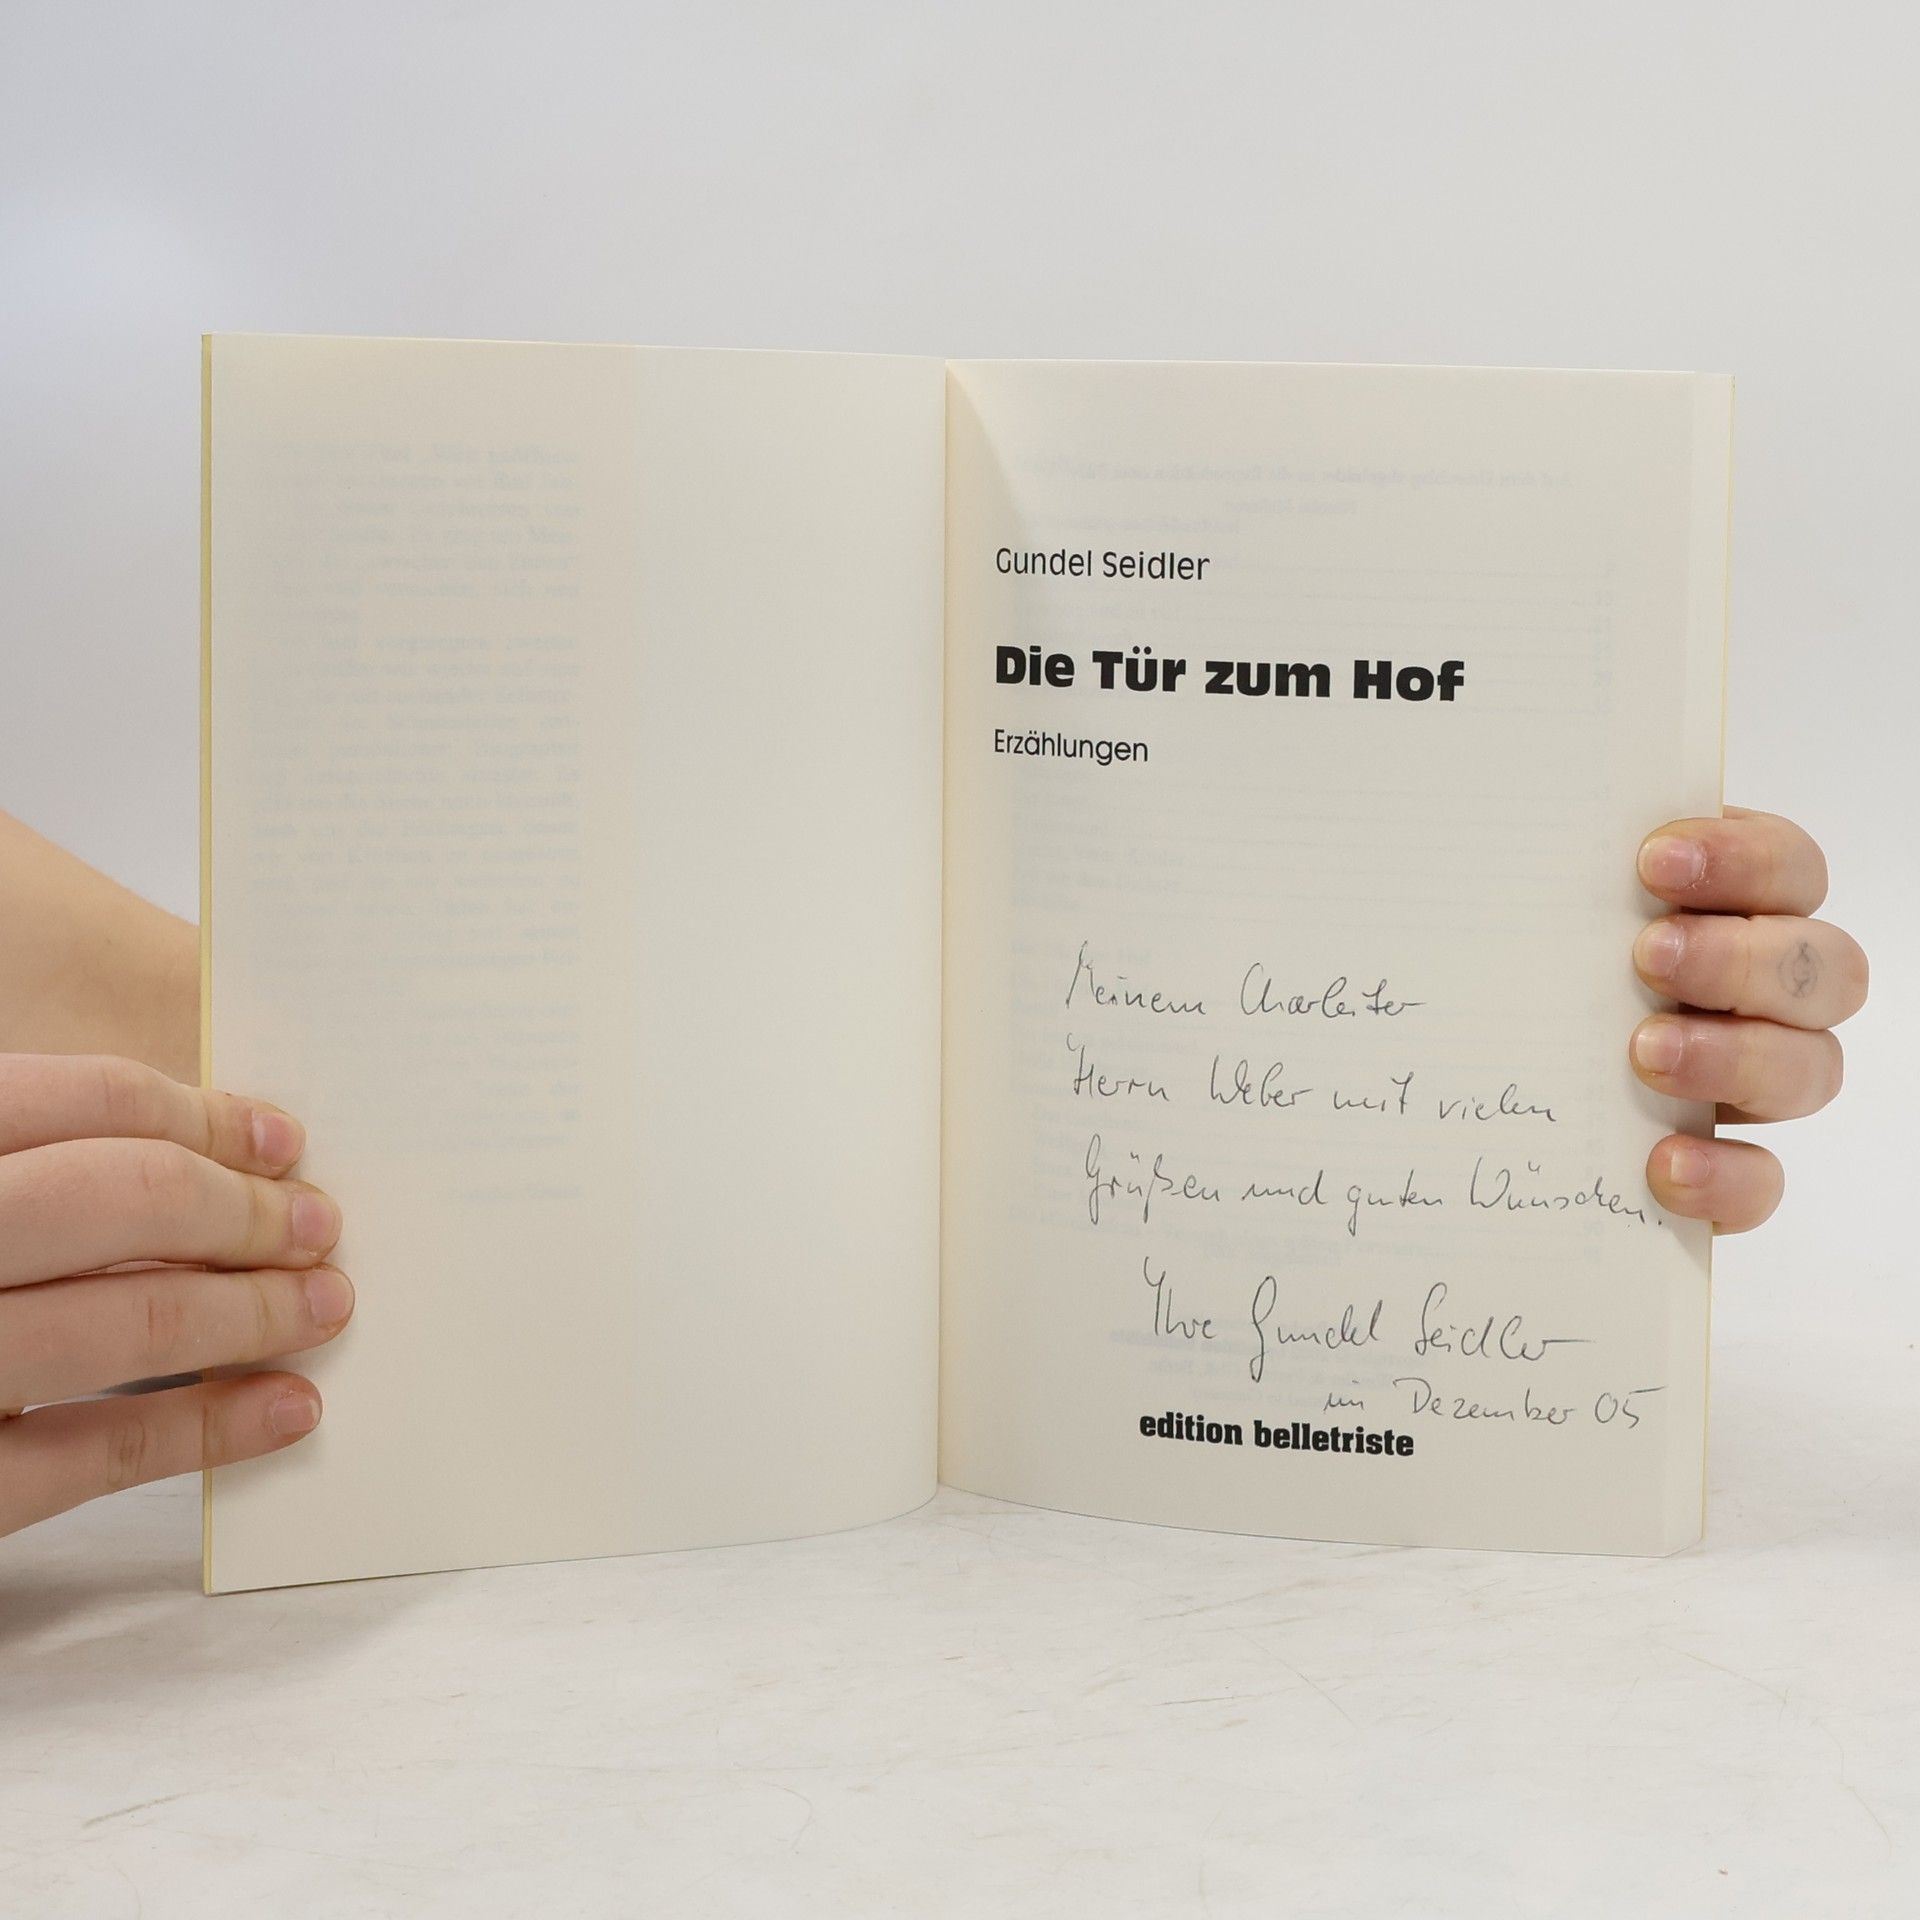 Gundel Seidler
Die Tür zum Hof
Erzählungen
Meinem Chorleiter
Herrn Weber mit vielen
Grüßen und guten Wünschen.
Ihre Gundel Seidler
im Dezember 05
edition belletriste